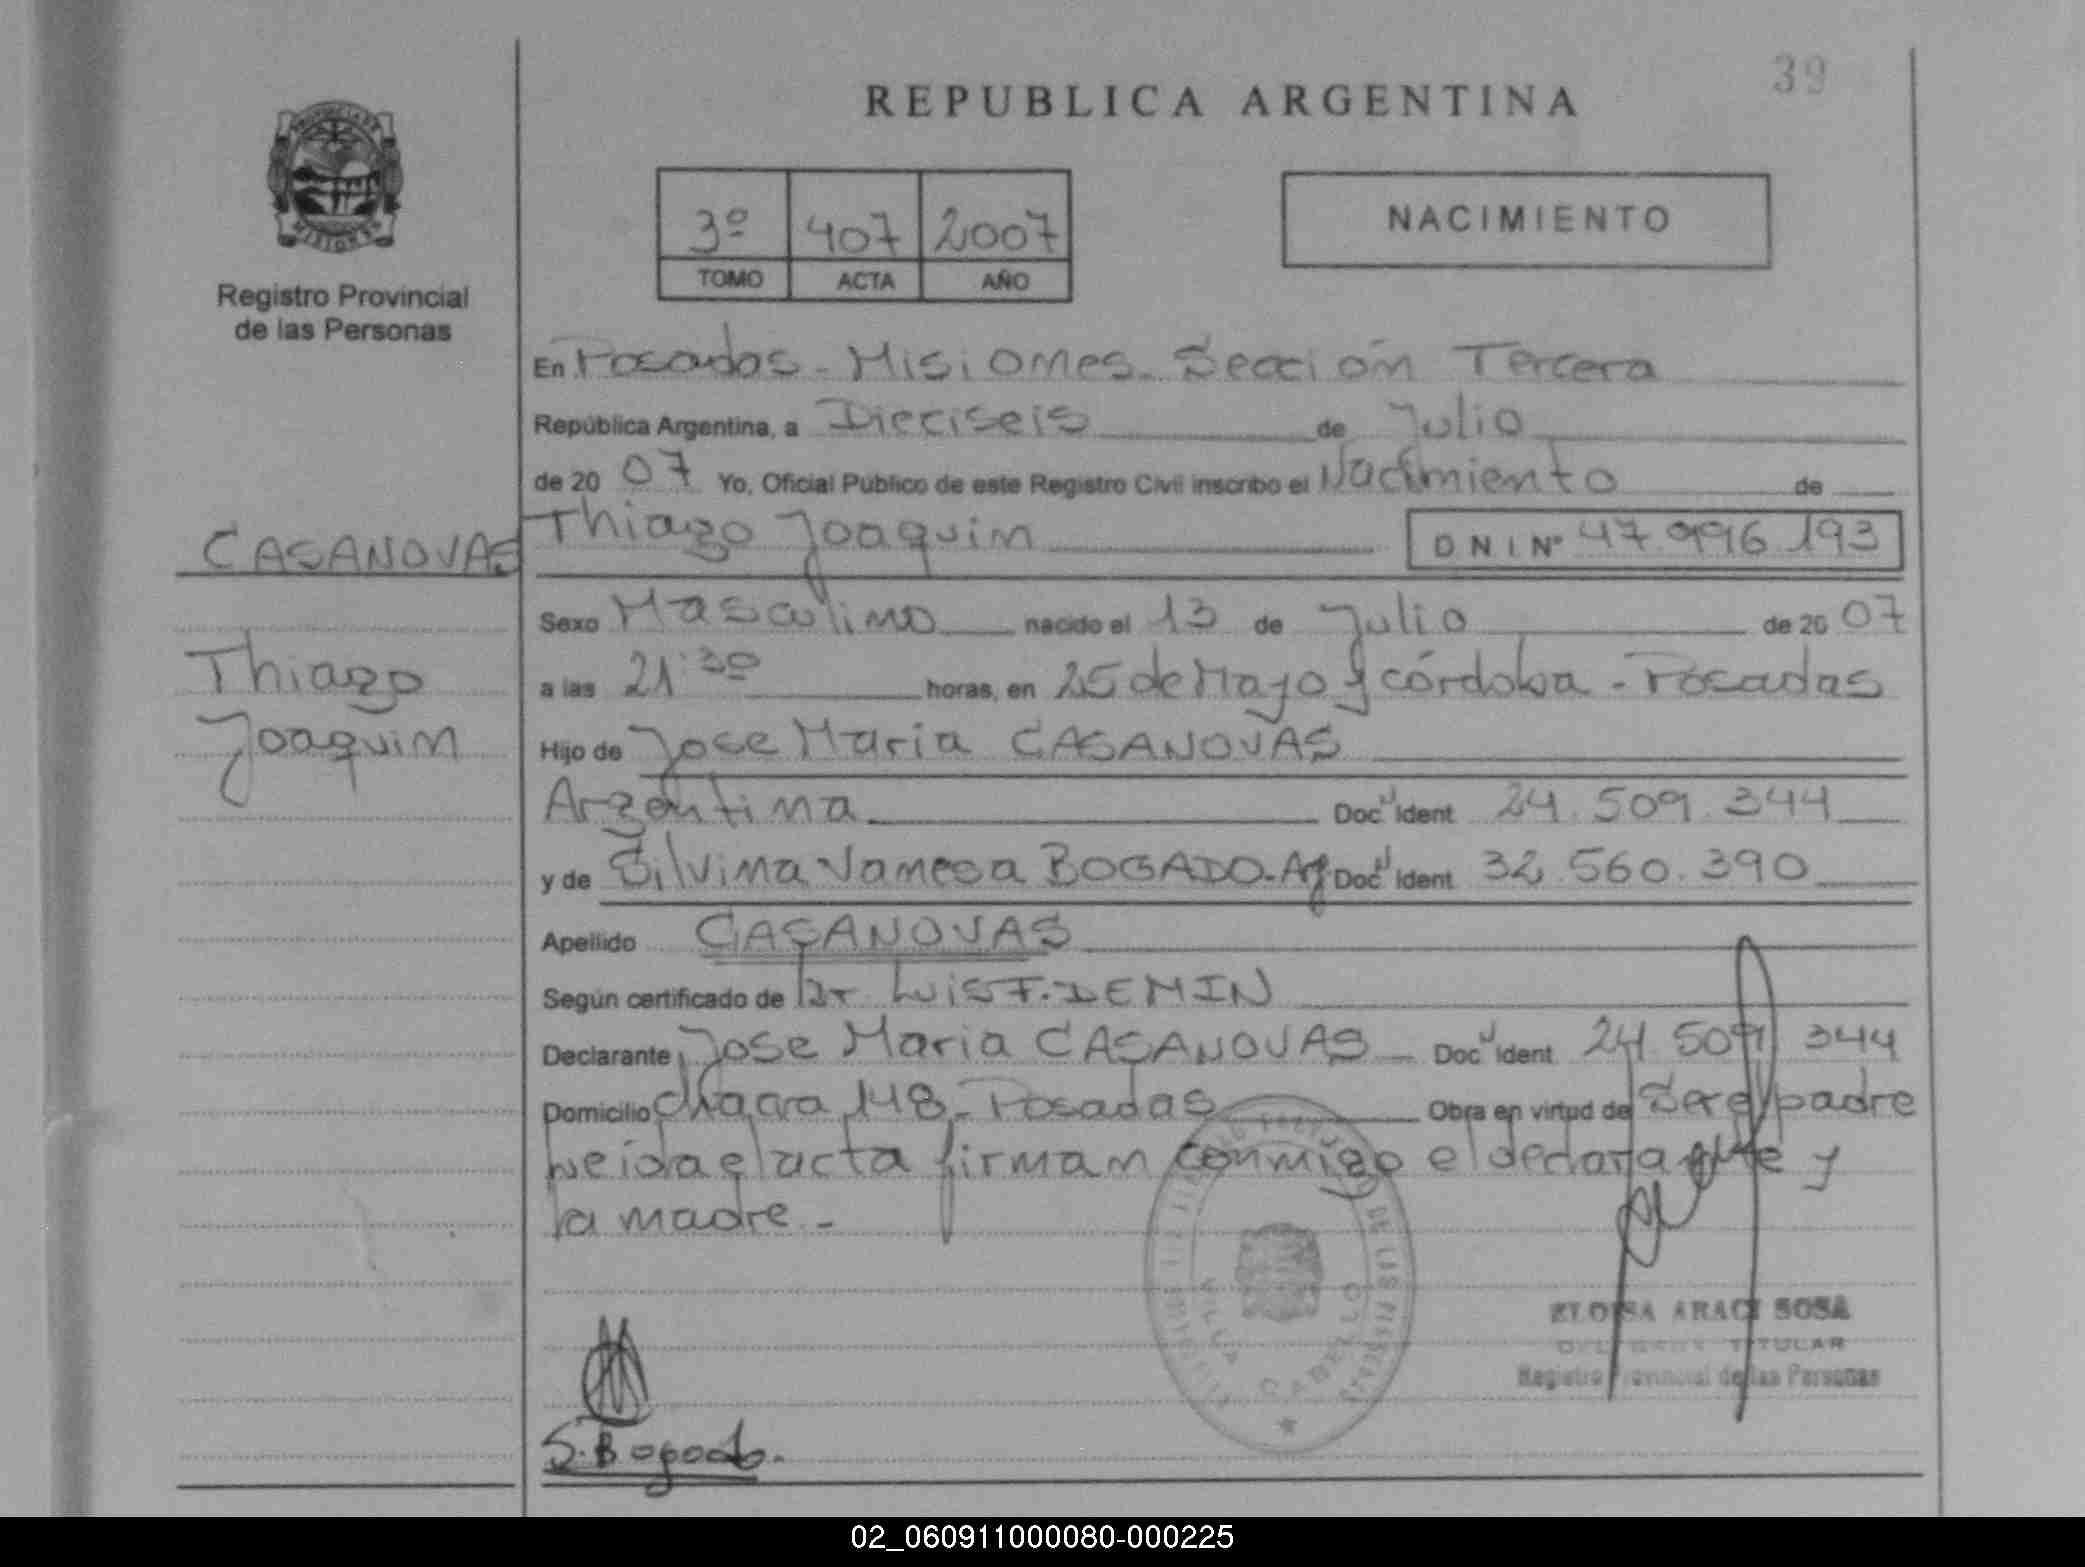 39
REPUBLICA ARGENTINA
3º 407 2007
TOMO ACTA AÑO
NACIMIENTO
MISIONES
Registro Provincial
de las Personas
En Posadas - Misiones - Sección Tercera
República Argentina, a Dieciseis de Julio
de 20 07 Yo, Oficial Público de este Registro Civil inscribo el Nacimiento de
CASANOVAS Thiago Joaquin D N I Nº 47.996.193
Sexo Masculino nacido el 13 de Julio de 20 07
Thiago
Joaquin
a las 21:30 horas, en 25 de Mayo y córdoba - Posadas
Hijo de Jose Maria CASANOVAS
Argentina Docu Ident 24.509.344
y de Silvina Vanesa BOGADO-Ag Docu Ident 32.560.390
Apellido CASANOVAS
Según certificado de Dr Luis F. DEMIN
Declarante Jose Maria CASANOVAS Docu Ident 24.509.344
Domicilio chacra 148 - Posadas Obra en virtud de Ser el padre
Leida el acta firman conmigo el declarante y
la madre. -
VILLA CABELLO
ELOISA ARACI SOSA
TITULAR
Registro Provincial de las Personas
S. Bogado.
02_060911000080-000225